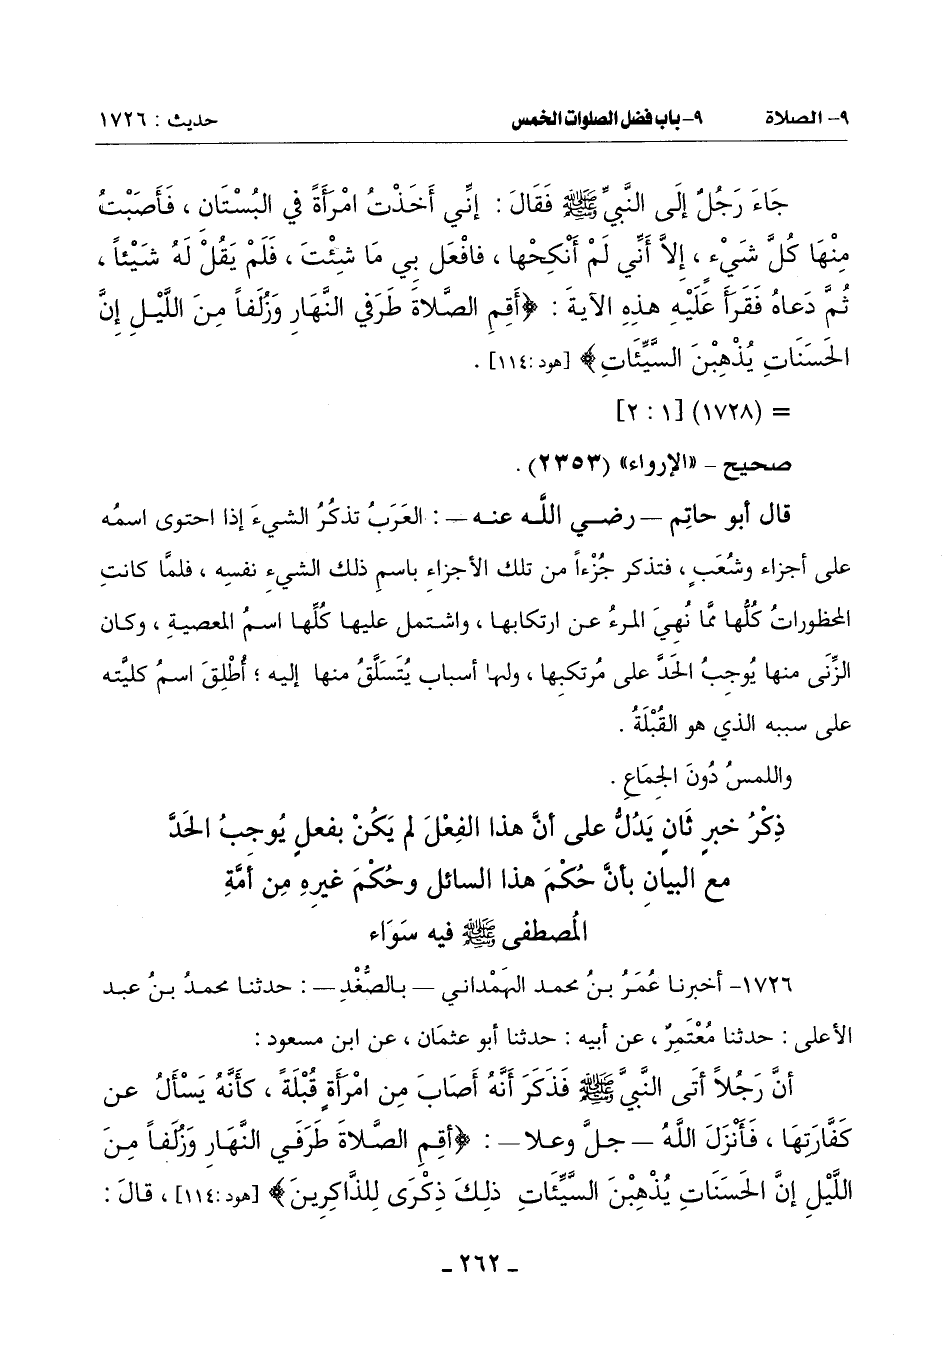 ٩- الصلاة ٩-باب فضل الصلوات الخمس حديث : ١٧٢٦
جَاءَ رَجُلٌ إِلَى النَّبيِّ ﷺ فَقَالَ : إنِّي أَخَذْتُ امْرَأَةً في البُسْتَانِ ، فَأَصَبْتُ
مِنْهَا كُلَّ شَيْءٍ ، إلاَّ أَنِّي لَمْ أَنْكِحْها ، فافْعَل بِي مَا شِئْتَ ، فَلَمْ يَقُلْ لَهُ شَيْئاً ،
ثُمَّ دَعَاهُ فَقَرَأَ عَلَيْهِ هذِهِ الآيةَ : ﴿أَقِمِ الصَّلاةَ طَرَفَي النَّهَارِ وَزُلَفاً مِنَ اللَّيْلِ إنَّ
الحَسَنَاتِ يُذْهِبْنَ السَّيِّئَاتِ﴾ [هود:١١٤] .
= (١٧٢٨) [١ : ٢]
صحيح – «الإرواء» (٢٣٥٣) .
قال أبو حاتِم – رضي اللَّه عنه – : العَرَبُ تذكُرُ الشيءَ إذا احتوى اسمُه
على أجزاء وشُعَبٍ ، فتذكر جُزْءاً من تلك الأجزاء باسمِ ذلك الشيء نفسِه ، فلمَّا كانتِ
المحظوراتُ كُلُّها مَّا نُهيَ المرءُ عن ارتكابها ، واشتمل عليها كُلِّها اسمُ المعصيةِ ، وكان
الزِّنَى منها يُوجِبُ الحَدَّ على مُرتكبِها ، ولها أسباب يُتَسَلَّقُ منها إليه ؛ أُطْلِقَ اسمُ كليَّته
على سببه الذي هو القُبْلَةُ .
واللمسُ دُونَ الجِمَاعِ .
ذِكْرُ خبرٍ ثَانٍ يَدُلُّ على أنَّ هذا الفِعْلَ لم يَكُنْ بفعلٍ يُوجبُ الحَدَّ
مع البيانِ بأنَّ حُكْمَ هذا السائل وحُكْمَ غيرِهِ مِن أمَّةِ
المُصطفى ﷺ فيه سَوَاء
١٧٢٦- أخبرنا عُمَرُ بنُ محمد الهَمْداني – بالصُّغْدِ – : حدثنا محمدُ بنُ عبد
الأعلى : حدثنا مُعْتَمِرٌ ، عن أبيه : حدثنا أبو عثمَان ، عن ابن مسعود :
أنَّ رَجُلاً أتَى النَّبيَّ ﷺ فَذَكَرَ أَنَّهُ أصَابَ مِن امْرَأةٍ قُبْلَةً ، كَأنَّهُ يَسْألُ عن
كَفَّارَتِها ، فَأَنْزَلَ اللَّهُ – جلَّ وعلا – : ﴿أَقِمِ الصَّلاةَ طَرَفَيِ النَّهَارِ وَزُلَفاً مِنَ
اللَّيْلِ إنَّ الحَسَنَاتِ يُذْهِبْنَ السَّيِّئَاتِ ذلِكَ ذِكْرَى لِلذَّاكِرِينَ﴾ [هود:١١٤] ، قالَ :
- ٢٦٢ -